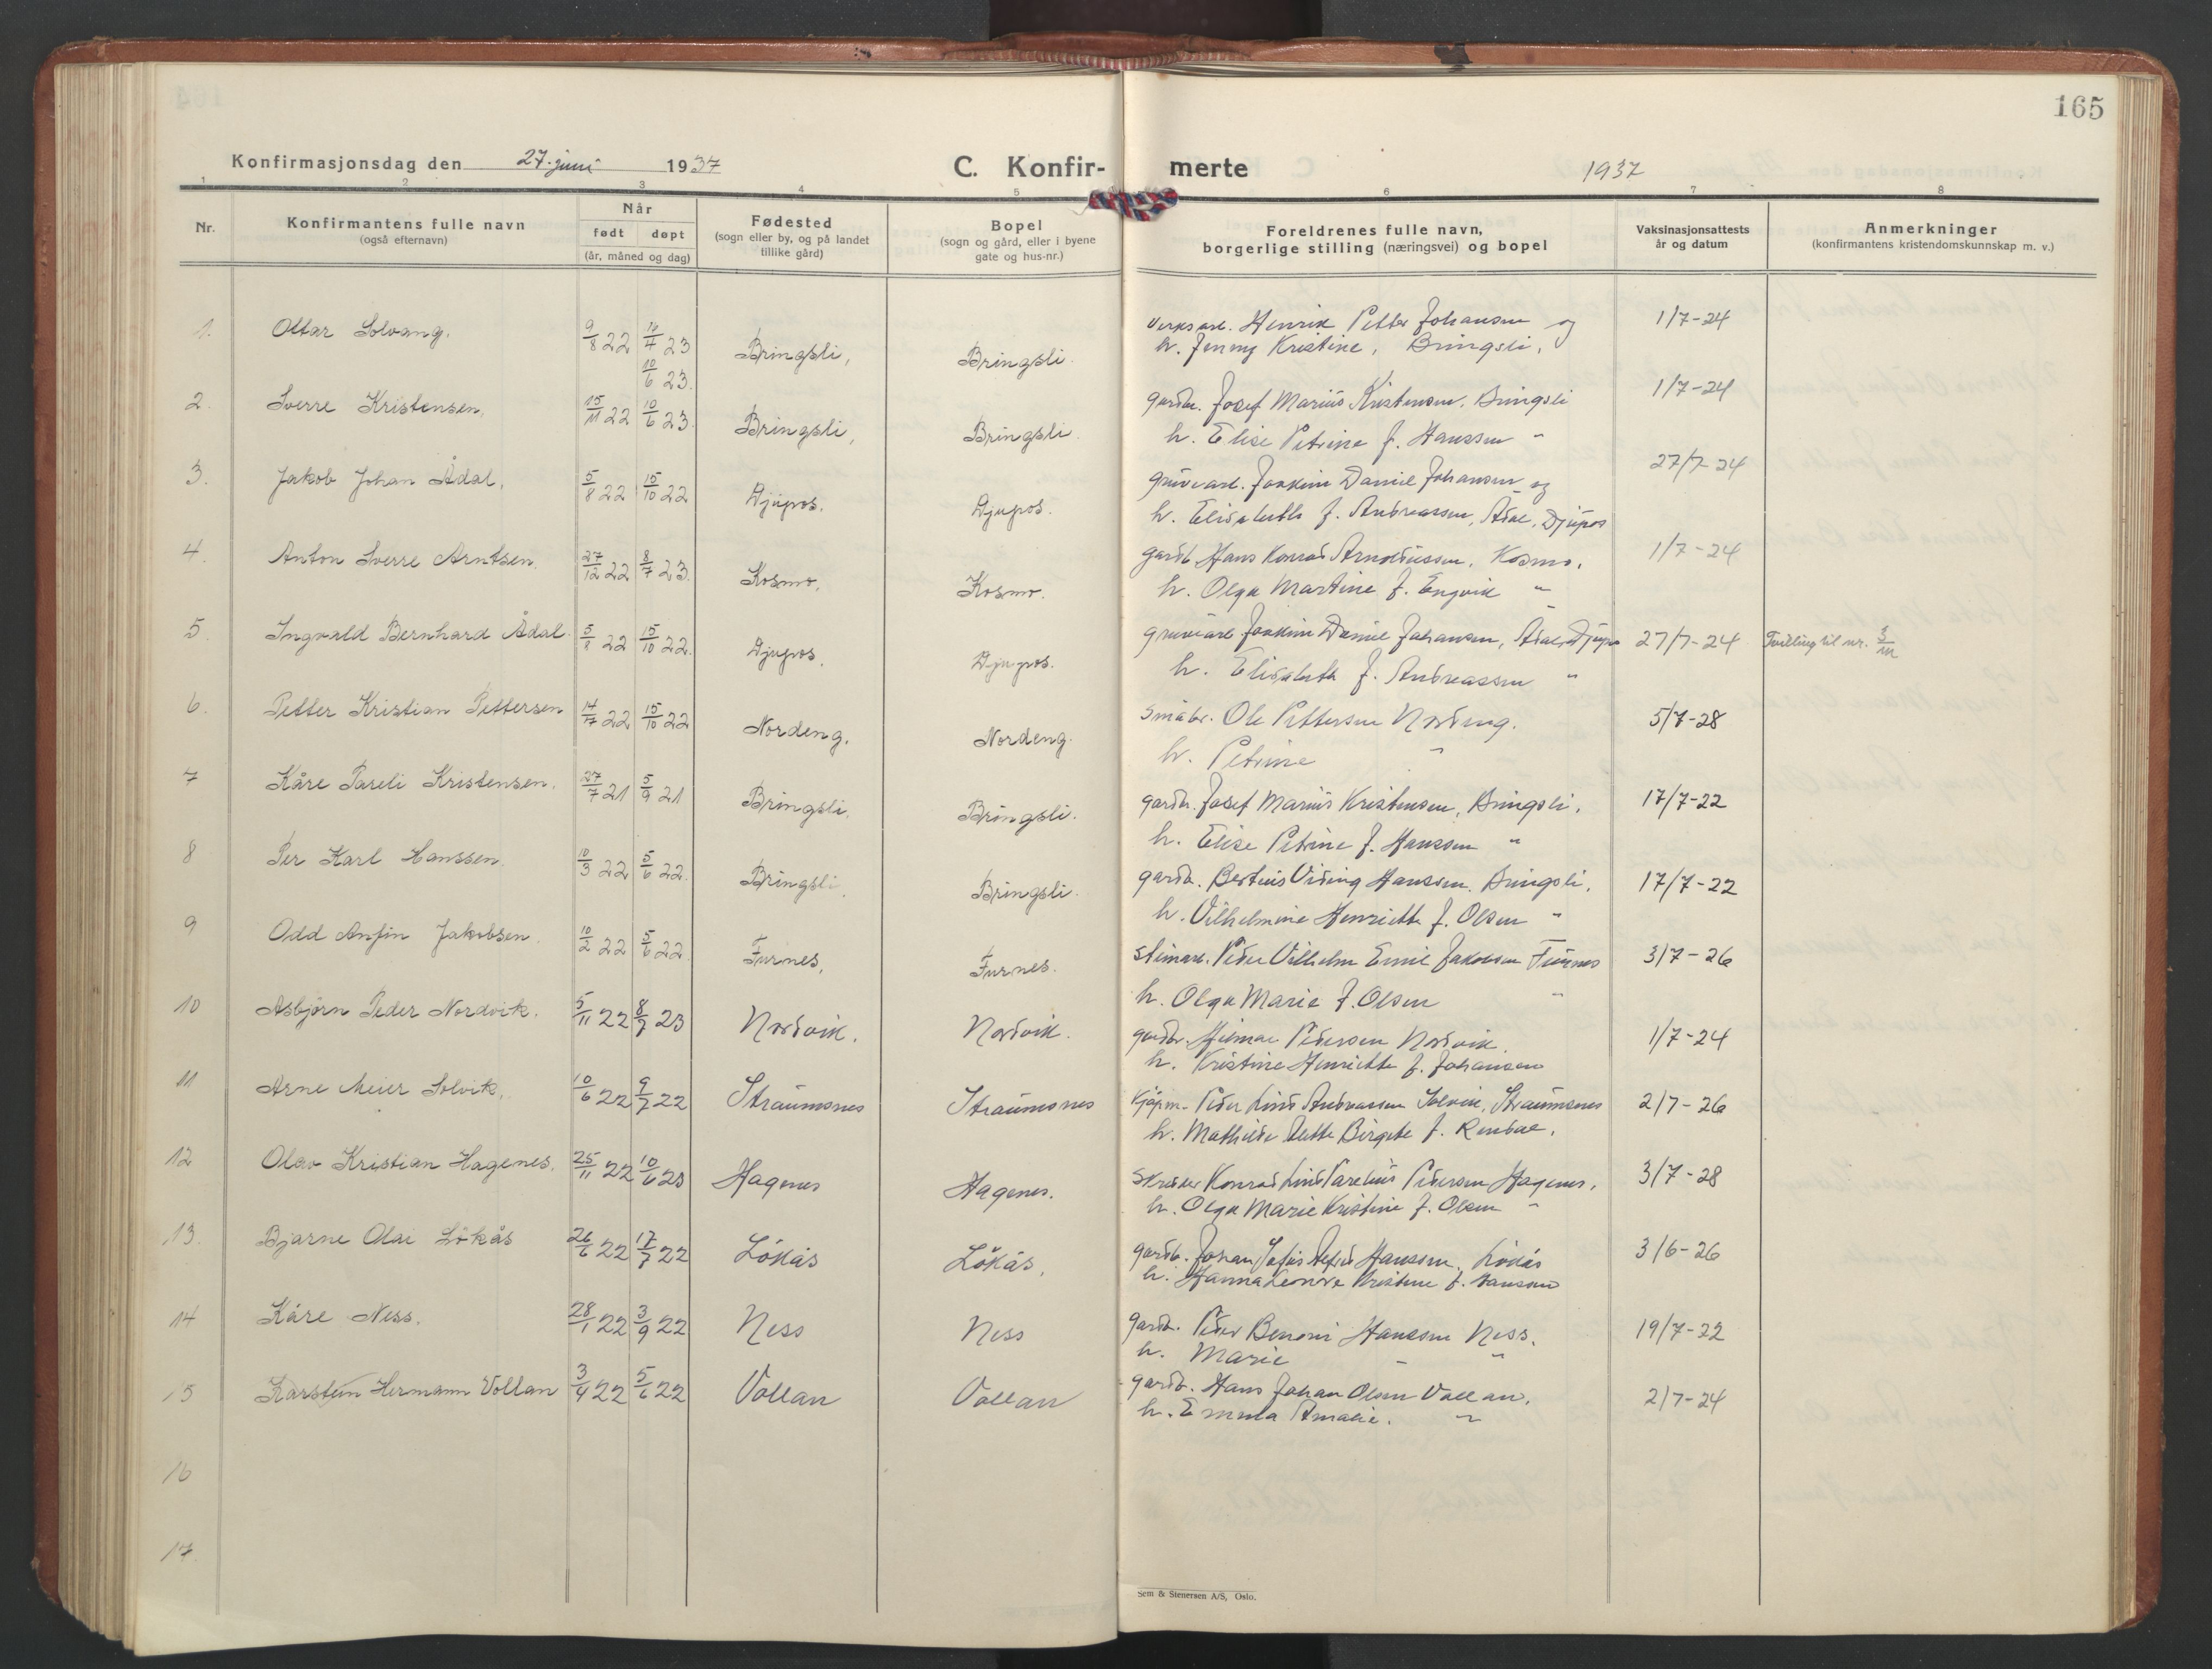 165
Konfirmasjonsdag den 27. juni 1937 C. Konfir- merte 1937
1 2 3 4 5 6 7 8
Nr. Konfirmantens fulle navn (også efternavn) Når født døpt (år, måned og dag) Fødested (sogn eller by, og på landet tillike gård) Bopel (sogn og gård, eller i byene gate og hus-nr.) Foreldrenes fulle navn, borgerlige stilling (næringsvei) og bopel Vaksinasjonsattests år og datum Anmerkninger (konfirmantens kristendomskunnskap m. v.)
1. Ottar Solvang. 9/8 22 14/4 23 Bringsli, Bringsli. Verksarb. Henrik Petter Johansen og 1/7-24
10/6 23. h. Jenny Kristine, Bringsli.
2. Sverre Kristensen. 15/11 22 10/6 23. Bringsli, Bringsli. gardbr. Josef Marius Kristensen, Bringsli 1/7-24
h. Elise Petrine f. Hanssen "
3. Jakob Johan Ådal. 5/8 22 15/10 22 Djupos. Djupos. gruvearb. Joakim Daniel Johansen og 27/7-24
h. Elisabeth f. Andreassen, Ådal, Djupos
4. Anton Sverre Arntsen. 27/12 22 8/7 23. Kosmo. Kosmo. gardb. Hans Konrad Arnoldussen, Kosmo. 1/7-24
h. Olga Martine f. Engvik "
5. Ingvald Bernhard Ådal. 5/8 22 15/10 22. Djupos. Djupos. gruvearb Joakim Daniel Johansen, Ådal, Djupos 27/7-24 Tvilling til nr. 3/m
h. Elisabeth f. Andreassen "
6. Petter Kristian Pettersen 14/7 22 15/10 22 Nordeng. Nordeng. småbr. Ole Pettersen Nordeng. 5/7-28
h. Petrine "
7 Kåre Pareli Kristensen. 27/7 21 5/9 21 Bringsli. Bringsli. gardbr. Josef Marius Kristensen, Bringsli. 17/7-22
h. Elise Petrine f. Hanssen "
8 Per Karl Hanssen. 10/3 22 5/6 22. Bringsli. Bringsli. gardb. Bertius Viding Hanssen. Bringsli. 17/7-22
h. Vilhelmine Henriette f. Olsen "
9 Odd Anfin Jakobsen. 10/2 22 5/6 22. Furnes. Furnes. Peder Vilhelm Emil Jakobsen Furnes 3/7-26
h. Olga Marie f. Olsen "
10 Asbjörn Peder Nordvik. 5/11 22 8/7 23 Nordvik. Nordvik. gardbr. Hilmar Pedersen Nordvik. 1/7-24
h. Kristine Henriette f. Johansen
11 Arne Meier Solvik. 10/6 22 9/7 22 Straumsnes Straumsnes Kjøpm. Peder Lind Andreassen Solvik, Straumsnes 2/7-26
h. Mathilde Birgite f.
12 Olav Kristian Hagenes. 25/11 22 10/6 23 Hagenes Hagenes. Skredder Konrad Lind Parelius Pedersen Hagenes. 3/7-28
h. Olga Marie Kristine f. Olsen "
13. Bjarne Olai Lökås 26/6 22 17/7 22 Lökås Lökås. gardb. Johan Hanssen. Lökås 3/6-26
h. Hanna Leonore Kristine f. Hanssen
14 Kåre Ness. 28/1 22 3/9 22 Ness Ness gardb. Peder Benoni Hanssen Ness. 19/7-22
h. Marie " "
15 Karsten Hermann Vollan 3/4 22 5/6 22 Vollan Vollan gardb. Hans Johan Olsen Vollan. 2/7-24
h. Emma Amalie. "
16
17.
Sem & Stenersen A/S, Oslo.